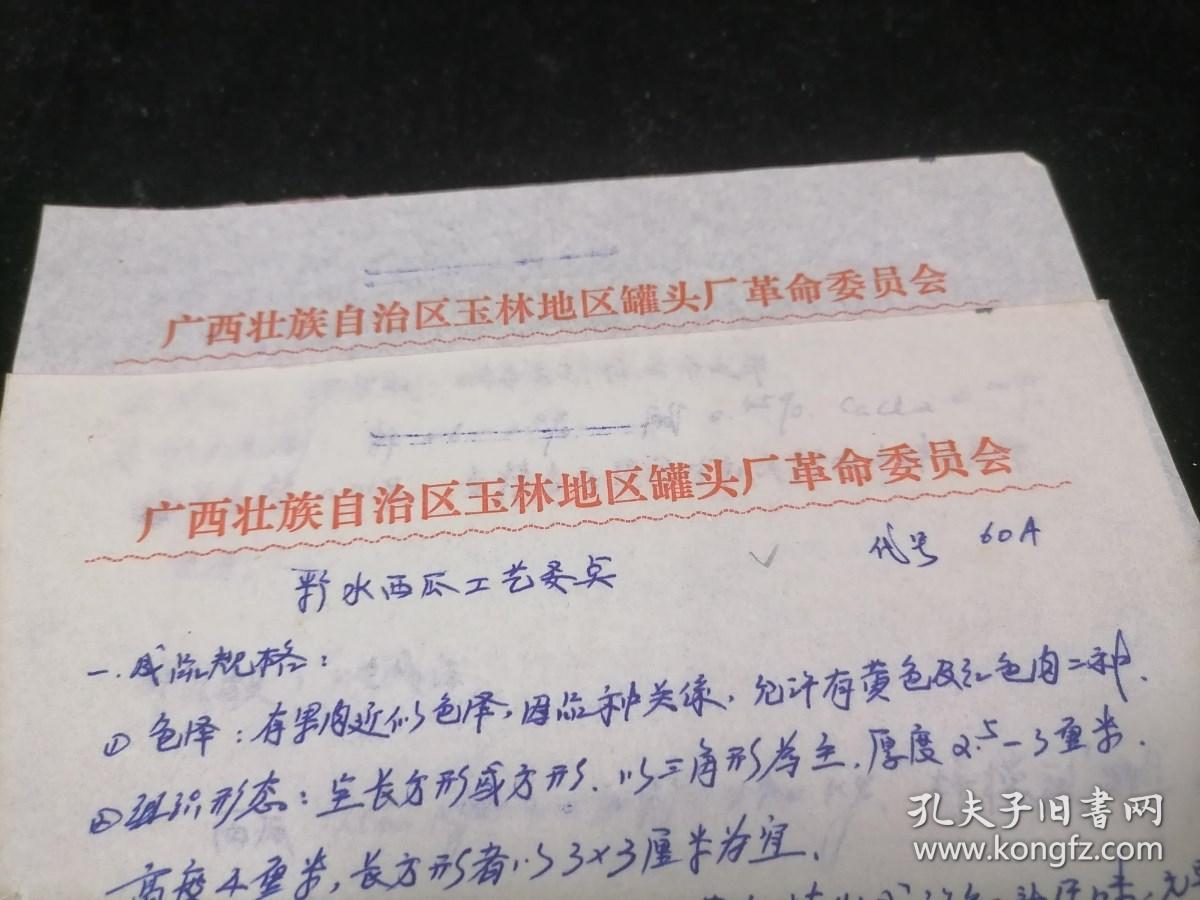 广西壮族自治区玉林地区罐头厂革命委员会
广西壮族自治区玉林地区罐头厂革命委员会
代号 60A
水西瓜工艺要点
一.成品规格：
① 色泽：有果肉近似色泽，因品种关系，允许有黄色及红色肉二种.
② 组织形态：呈长方形或方形.以三角形为主.厚度2.5-3厘米.
高度4厘米，长方形者以3×3厘米为宜.
孔夫子旧书网
www.kongfz.com